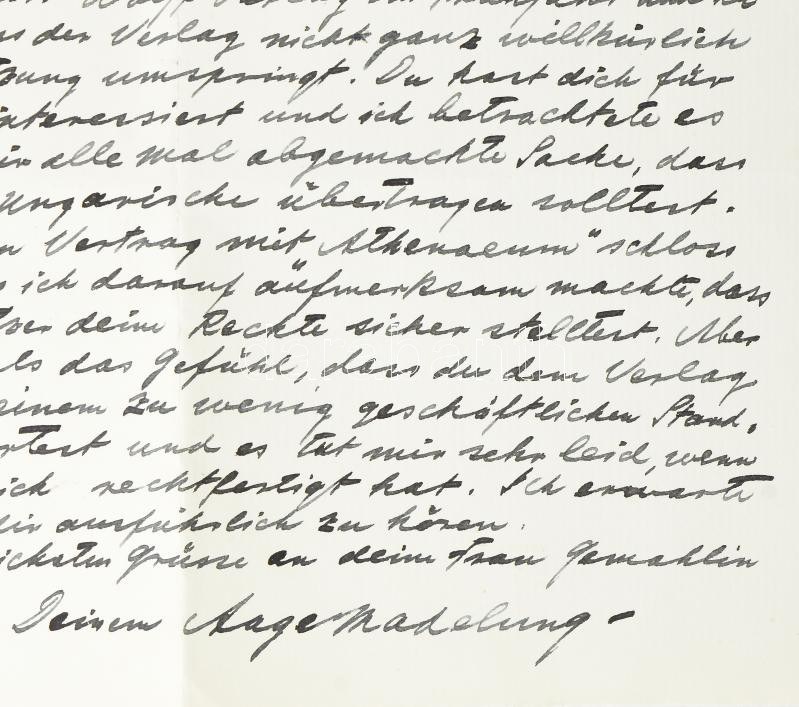 Verlag
der Verlag nicht ganz willkürlich
umspringt. Du hast dich für
interessiert und ich betrachtete es
alle mal abgemachte Sache, dass
Ungarische übertragen solltest.
Vertrag mit „Athenaeum" schloss
ich darauf aufmerksam machte, dass
deine Rechte sicher stelltest. Aber
das Gefühl, dass du dem Verlag
einem zu wenig geschäftlichen Stand-
und es tut mir sehr leid, wenn
ich rechtfertigt hat. Ich erwarte
dir ausführlich zu hören.
Grüsse an deine Frau Gemahlin
Deinem Aage Madelung -